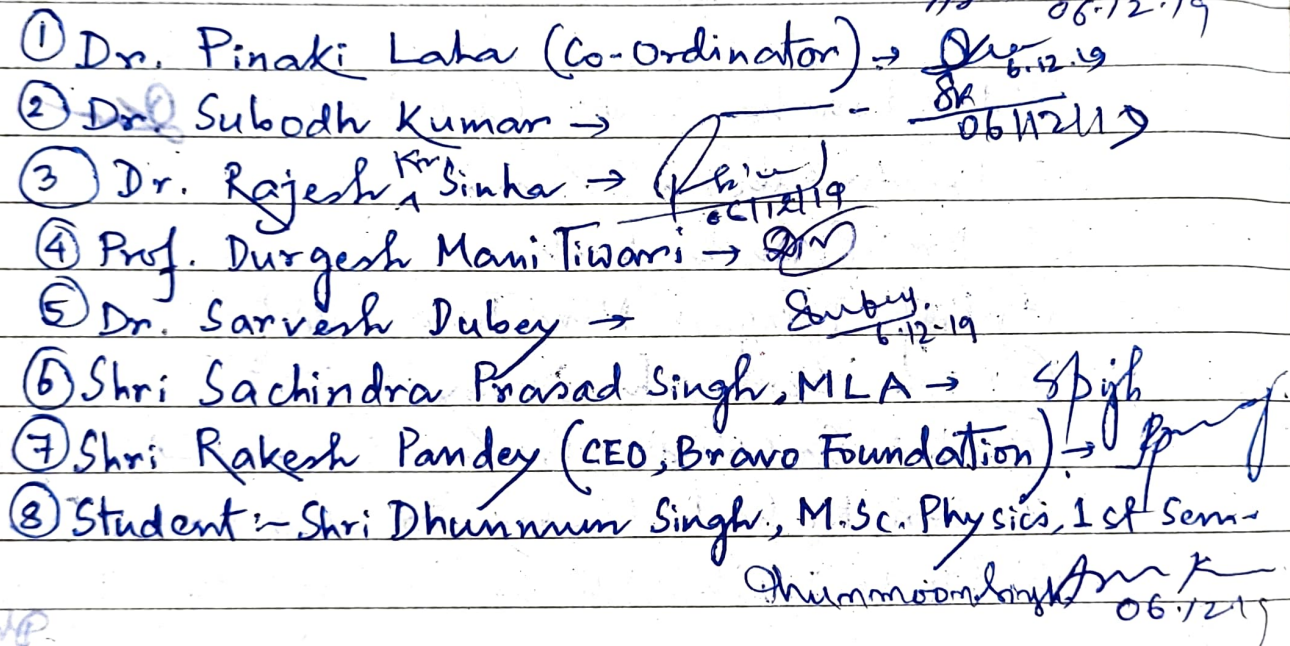 06.12.19
① Dr. Pinaki Laha (Co-Ordinator) → 6.12.19
② Dr. Subodh Kumar → - SK 06/12/19
③ Dr. Rajesh Kr. Sinha → 06/12/19
④ Prof. Durgesh Mani Tiwari →
⑤ Dr. Sarvesh Dubey → SDubey. 6.12-19
⑥ Shri Sachindra Prasad Singh, MLA → SPSigh
⑦ Shri Rakesh Pandey (CEO, Bravo Foundation) →
⑧ Student :- Shri Dhunnmun Singh, M.Sc. Physics, 1st Sem-
Dhunmoon Singh 06.12.19